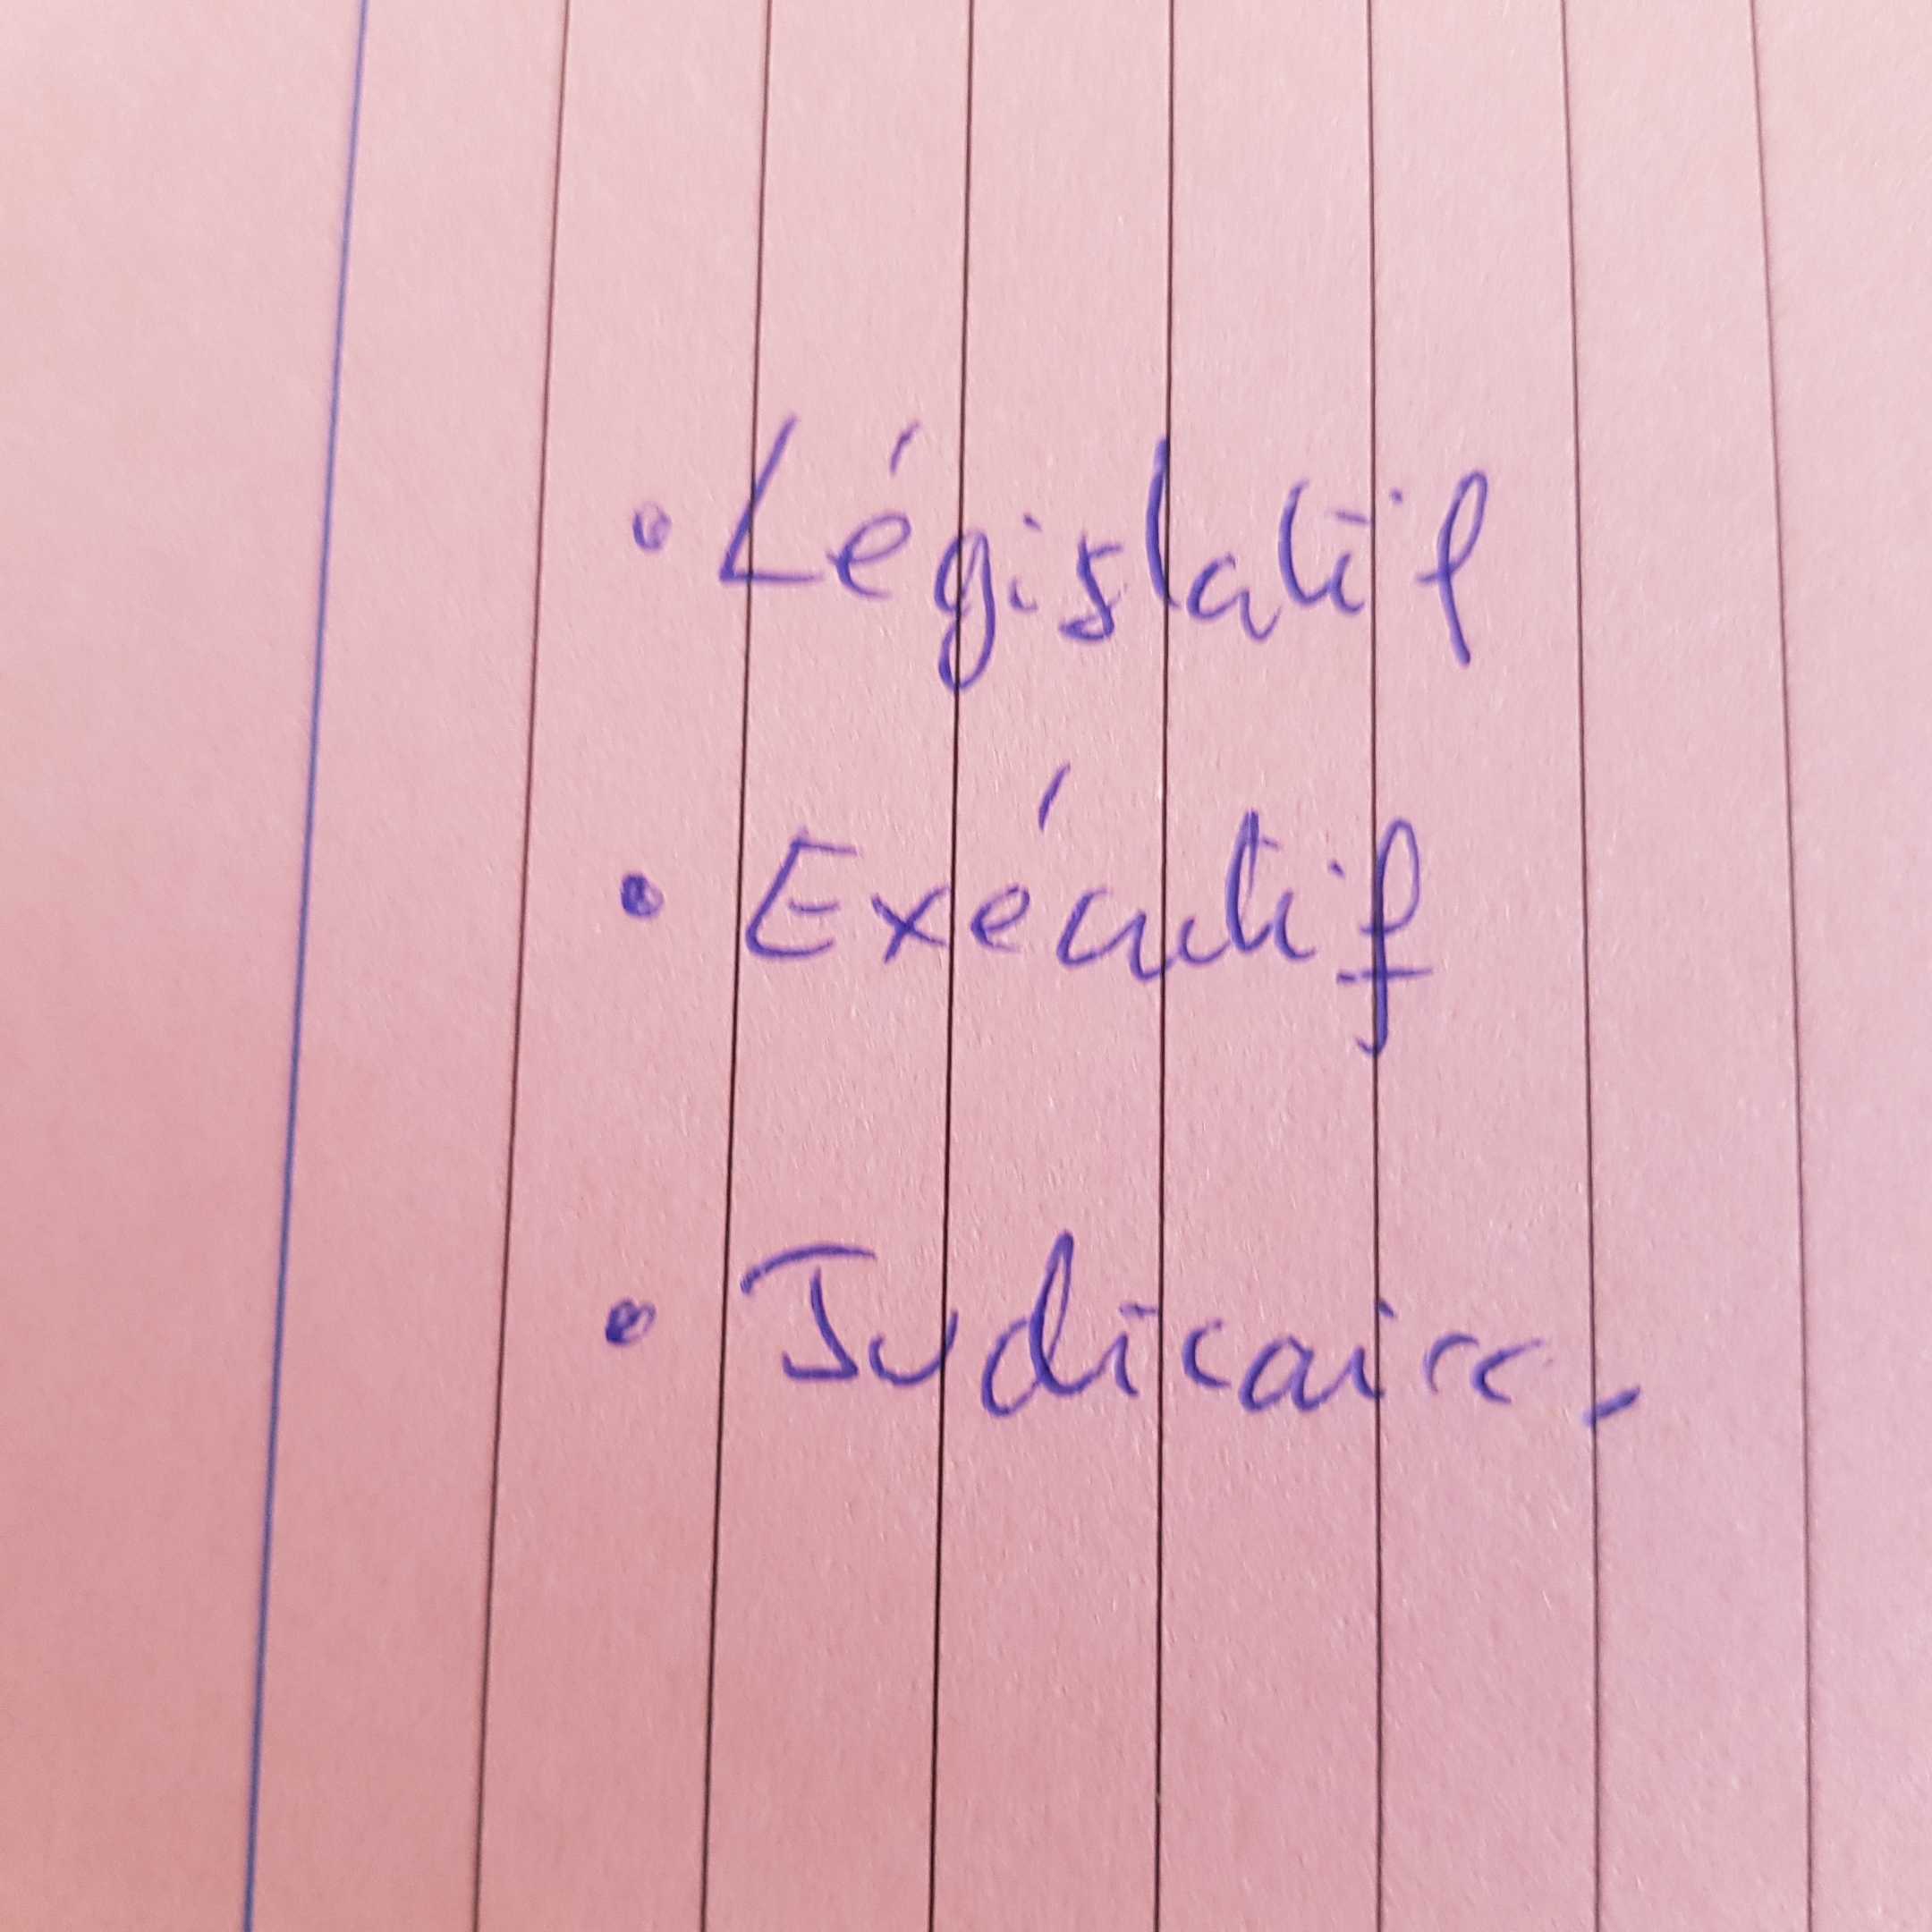 • Législatif
• Exécutif
• Judicaire.